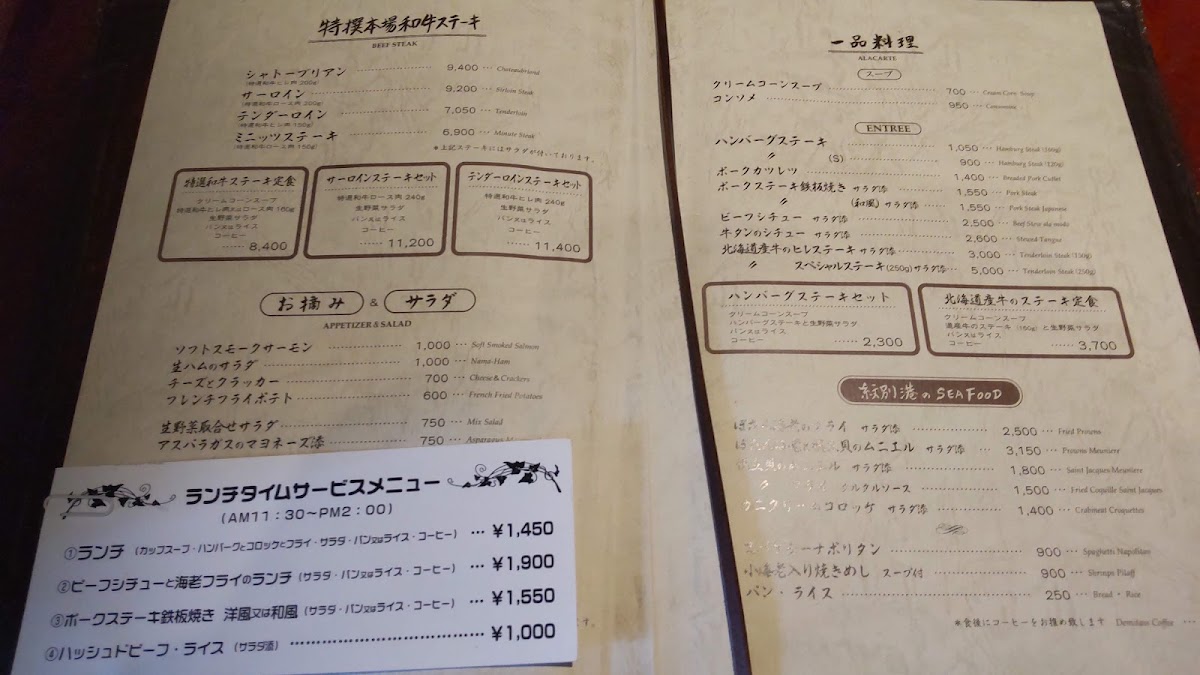 特撰本場和牛ステーキ
BEEF STEAK
シャトーブリアン 9,400 Chateaubriand
(特選和牛ヒレ肉 200g)
サーロイン 9,200 Sirloin Steak
(特選和牛ロース肉 200g)
テンダーロイン 7,050 Tenderloin
(特選和牛ヒレ肉 150g)
ミニッツステーキ 6,900 Minute Steak
(特選和牛ロース肉 150g)
*上記ステーキにはサラダが付いております。
特選和牛ステーキ定食
クリームコーンスープ
特選和牛ヒレ肉又はロース肉 160g
生野菜サラダ
パン又はライス
コーヒー
…… 8,400
サーロインステーキセット
特選和牛ロース肉 240g
生野菜サラダ
パン又はライス
コーヒー
…… 11,200
テンダーロインステーキセット
特選和牛ヒレ肉 240g
生野菜サラダ
パン又はライス
コーヒー
…… 11,400
お摘み & サラダ
APPETIZER & SALAD
ソフトスモークサーモン 1,000 Soft Smoked Salmon
生ハムのサラダ 1,000 Nama-Ham
チーズとクラッカー 700 Cheese & Crackers
フレンチフライポテト 600 French Fried Potatoes
生野菜取合せサラダ 750 Mix Salad
アスパラガスのマヨネーズ添 750 Asparagus
ランチタイムサービスメニュー
(AM11:30〜PM2:00)
①ランチ (カップスープ・ハンバーグとコロッケとフライ・サラダ・パン又はライス・コーヒー) … ¥1,450
②ビーフシチューと海老フライのランチ (サラダ・パン又はライス・コーヒー) … ¥1,900
③ポークステーキ鉄板焼き 洋風又は和風 (サラダ・パン又はライス・コーヒー) … ¥1,550
④ハッシュドビーフ・ライス (サラダ添) … ¥1,000
す。
一品料理
ALACARTE
スープ
クリームコーンスープ 700 Cream Corn Soup
コンソメ 950 Consomme
ENTREE
ハンバーグステーキ 1,050 Hamburg Steak (160g)
〃 (S) 900 Hamburg Steak (120g)
ポークカツレツ 1,400 Breaded Pork Cutlet
ポークステーキ鉄板焼き サラダ添 1,550 Pork Steak
〃 (和風) サラダ添 1,550 Pork Steak Japanese
ビーフシチュー サラダ添 2,500 Beef Stew ala mode
牛タンのシチュー サラダ添 2,600 Stewed Tongue
北海道産牛のヒレステーキ サラダ添 3,000 Tenderloin Steak (150g)
〃 スペシャルステーキ(250g) サラダ添 5,000 Tenderloin Steak (250g)
ハンバーグステーキセット
クリームコーンスープ
ハンバーグステーキと生野菜サラダ
パン又はライス
コーヒー …… 2,300
北海道産牛のステーキ定食
クリームコーンスープ
道産牛のステーキ (150g) と生野菜サラダ
パン又はライス
コーヒー …… 3,700
紋別港の SEAFOOD
フライ サラダ添 2,500 Fried Prowns
貝のムニエル サラダ添 3,150 Prowns Meuniere
サラダ添 1,800 Saint Jacques Meuniere
タルタルソース 1,500 Fried Coquille Saint Jacques
カニクリームコロッケ サラダ添 1,400 Crabmeat Croquettes
スパゲティーナポリタン 900 Spaghetti Napolitan
小海老入り焼きめし スープ付 900 Shrimps Pilaff
パン・ライス 250 Bread・Rice
*食後にコーヒーをお奨め致します Demitass Coffee …